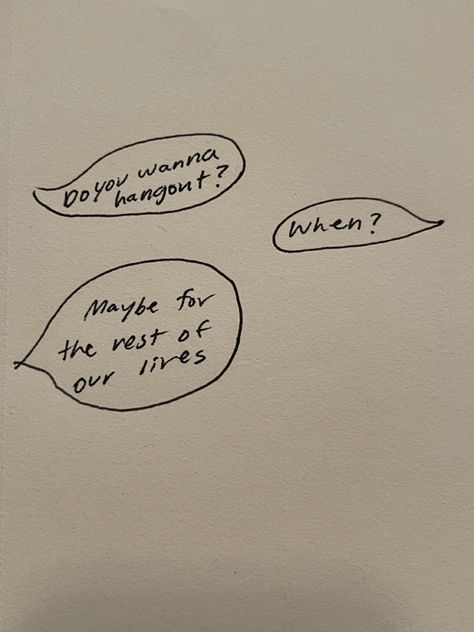 Do you wanna
hangout?
When?
Maybe for
the rest of
our lives